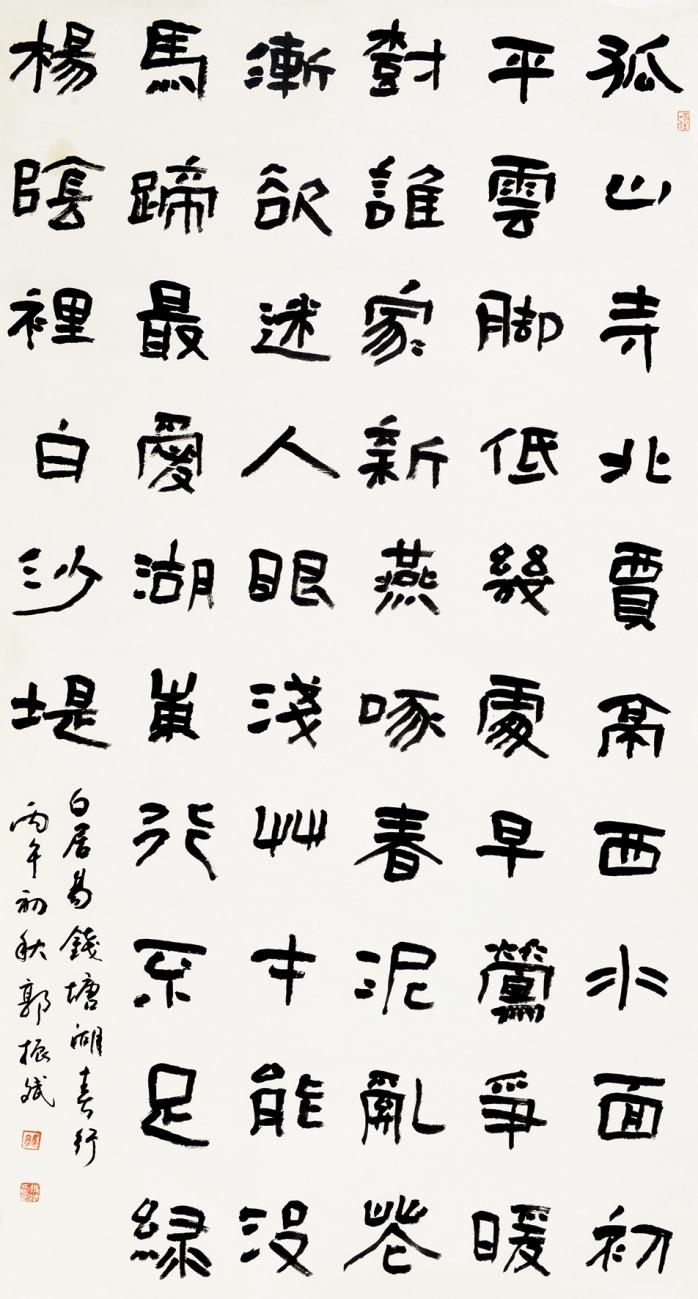 孤山寺北賈亭西水面初
平雲脚低幾處早鶯爭暖
樹誰家新燕啄春泥亂花
漸欲迷人眼淺艸才能没
馬蹄最愛湖東行不足緑
楊陰裡白沙堤
白居易錢塘湖春行
丙午初秋郭振斌